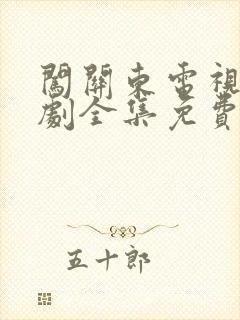 闖關東電視
劇全集免費
五十郎